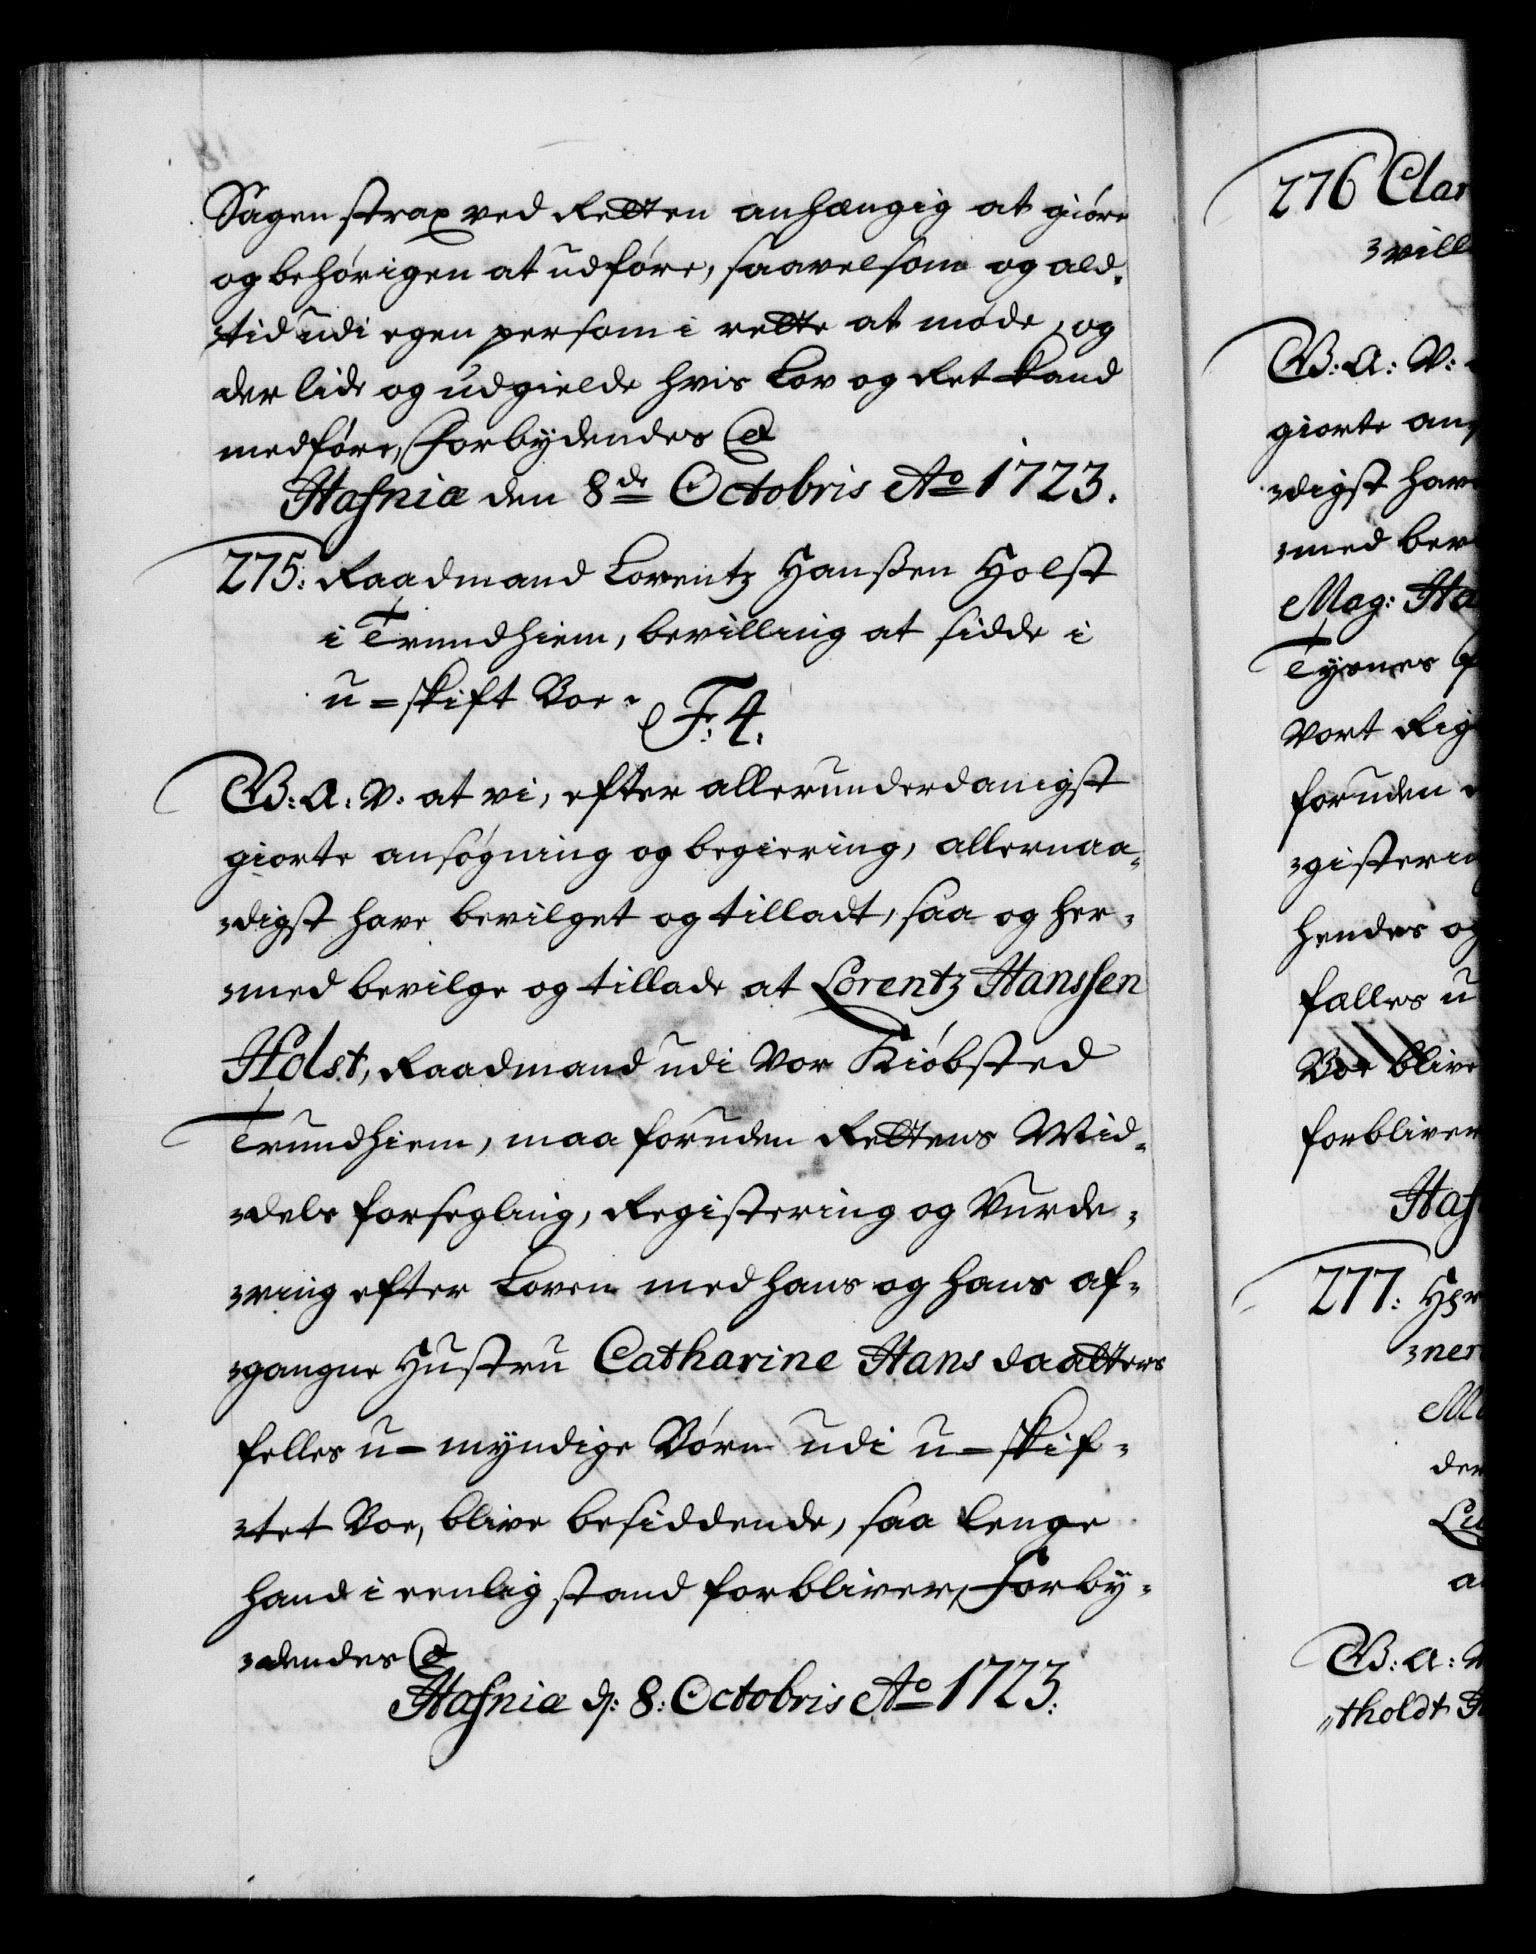 Sagen strax ved Retten anhængig at giöre
og behörigen at udföre, saavelsom og ald-
tid udi egen person i rette at møde, og
der lide og udgielde hvis Lov og Ret kand
medföre, Forbydendes &
Hafniæ den 8de Octobris Ao 1723.
275: Raadmand Lorentz Hanßen Holst
i Trundhiem, bevilling at sidde i
u-skift Boe.
F: 4.
G: A: V: at vi, efter allerunderdanigst
giorte ansögning og begiering, allernaa-
digst have bevilget og tilladt, saa og her-
med bevilge og tillade at Lorentz Hanssen
Holst, Raadmand udi Vor Kiöbsted
Trundhiem, maa foruden Rettens Mid-
dels forsegling, Registering og Vurde-
ring efter Loven med hans og hans af-
gangne Hustru Catharine Hans daatters
felles u-myndige Börn udi u-skif-
tet Boe, blive besiddende, saa lenge
hand i eenlig stand forbliver, Forby-
dendes &
Hafniæ d: 8: Octobris Ao 1723.
276 Clar
vill
G: A: V:
giorte an
digst hav
med bev
Mag: Ha
Tysnes
Vort Rig
foruden
gistering
hendes og
fælles u
Boe blive
forbliver
Haf
277:
ner
der
G: A:
tholdt